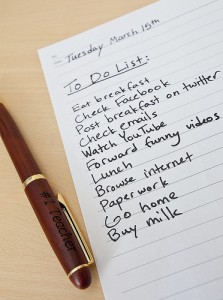 Tuesday March 15th
To Do List:
Eat breakfast
Check Facebook
Post breakfast on twitter
Check emails
Watch YouTube
Forward funny videos
Lunch
Browse internet
Paperwork
Go home
Buy milk
#1 Teacher